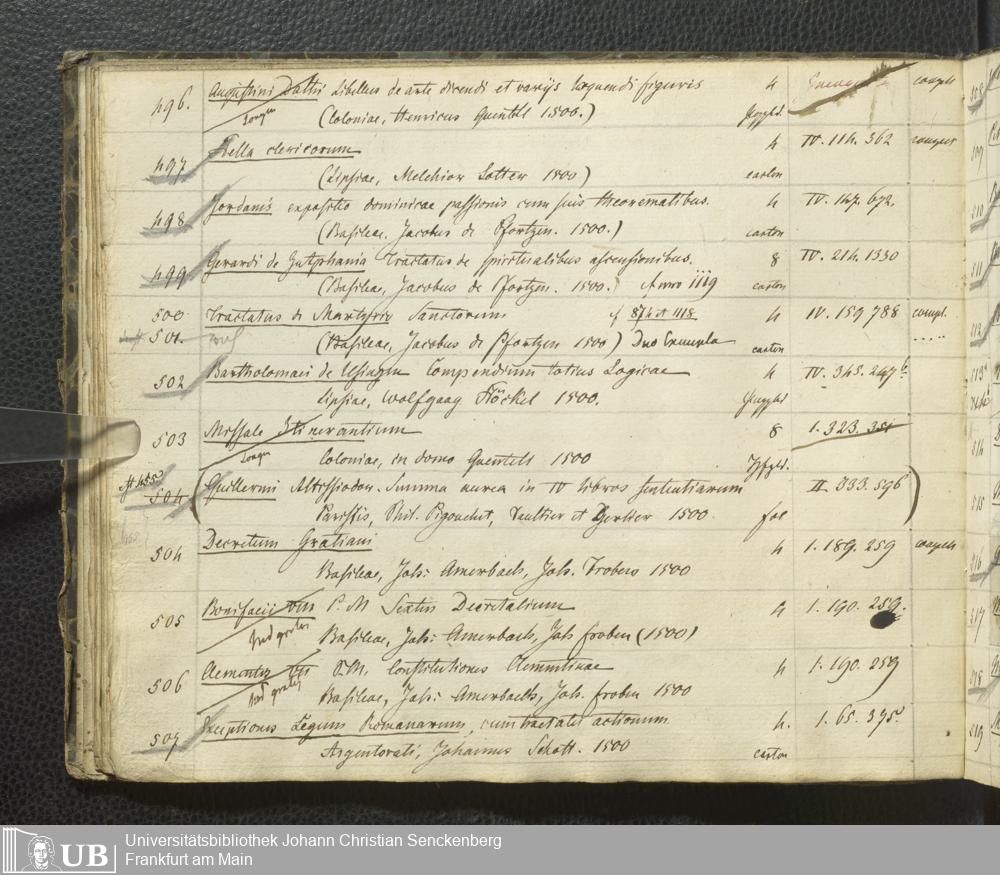 496. Augustini Dathi Libellus de arte dicendi et varijs loquendi figuris 4 compl
(Coloniae, Henricus Quentell 1500.)
497 Stella clericorum 4 IV. 114. 362 complet
(Lipsiae, Melchior Lotter 1500) carton
498 Jordanis expositio dominicae passionis cum suis theorematibus. 4 IV. 147. 672.
(Basileae, Jacobus de Pfortzen. 1500.) carton
499 Gerardi de Zutphania Tractatus de spiritualibus ascensionibus. 8 IV. 214. 1330
(Basileae, Jacobus de Pfortzen. 1500.) Anno iiij9 carton
500 Tractatus de Martyrio Sanctorum cf 874 et 1118 4 IV. 159 788 compl.
501. (Basileae, Jacobus de Pfortzen 1500) Duo Exempla carton .....
502 Bartholomaei de Usingen Compendium totius Logicae 4 IV. 345. 247
Lipsiae, Wolfgang Stöckel 1500.
503 Missale Itinerantium 8 1. 323. 351
Coloniae, in domo Quentell 1500
504 (Guillermi Altissiodor. Summa aurea in IV libros sententiarum II 333. 596)
Parisiis, Phil. Pigouchet, Vaultier et Gerlier 1500 fol
504 Decretum Gratiani 4 1. 189. 259 complt
Basileae, Joh: Amerbach, Joh. Froben 1500
505 Bonifacii VIII P. M Sextus Decretalium 4 1. 190. 259.
Basileae, Joh: Amerbach, Joh froben (1500)
506 Clementis P.M. Constitutiones Clementinae 4 1. 190. 259
Basileae, Joh: Amerbach, Joh. froben 1500
507 Exceptiones Legum Romanarum, cum tractatu actionum 4. 1. 65. 375.
Argentorati, Johannes Schott. 1500 carton
UB
Universitätsbibliothek Johann Christian Senckenberg
Frankfurt am Main